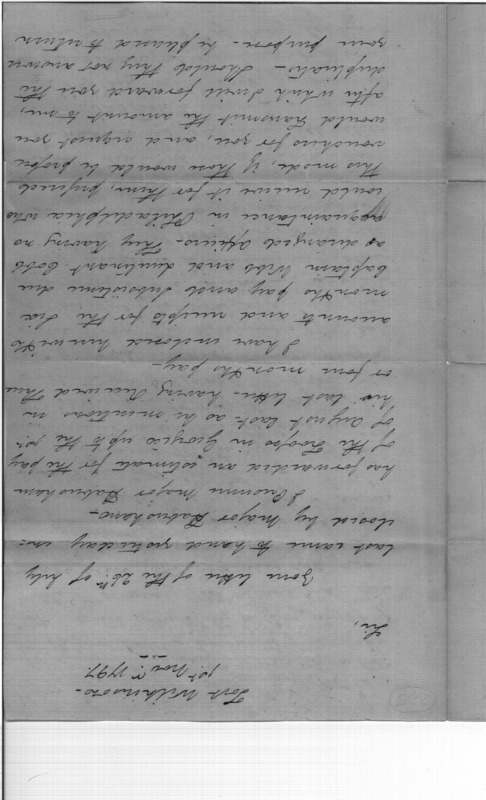 Fort Wilkinson
1st Nov.r 1797.
Sir,
Your letter of the 26th of July
last came to hand yesterday in-
closed by Major Habersham-
I presume Major Habersham
has forwarded an estimate for the pay
of the Troops in Georgia up to the 1st
of August last- as he mentions in
his last letter- having received three
or four months pay-
I have inclosed herewith
accounts and receipts for the six
months pay and subsistence due
Captain Webb and Lieutenant Bobb
as deranged officers- They having no
acquaintance in Philadelphia who
could receive it for them, prefered
this mode, if these would be proper
vouchers for you, and request you
would transmit the amount to me,
after which I will forward you the
duplicate- Should they not answer
your purpose- be pleased to return